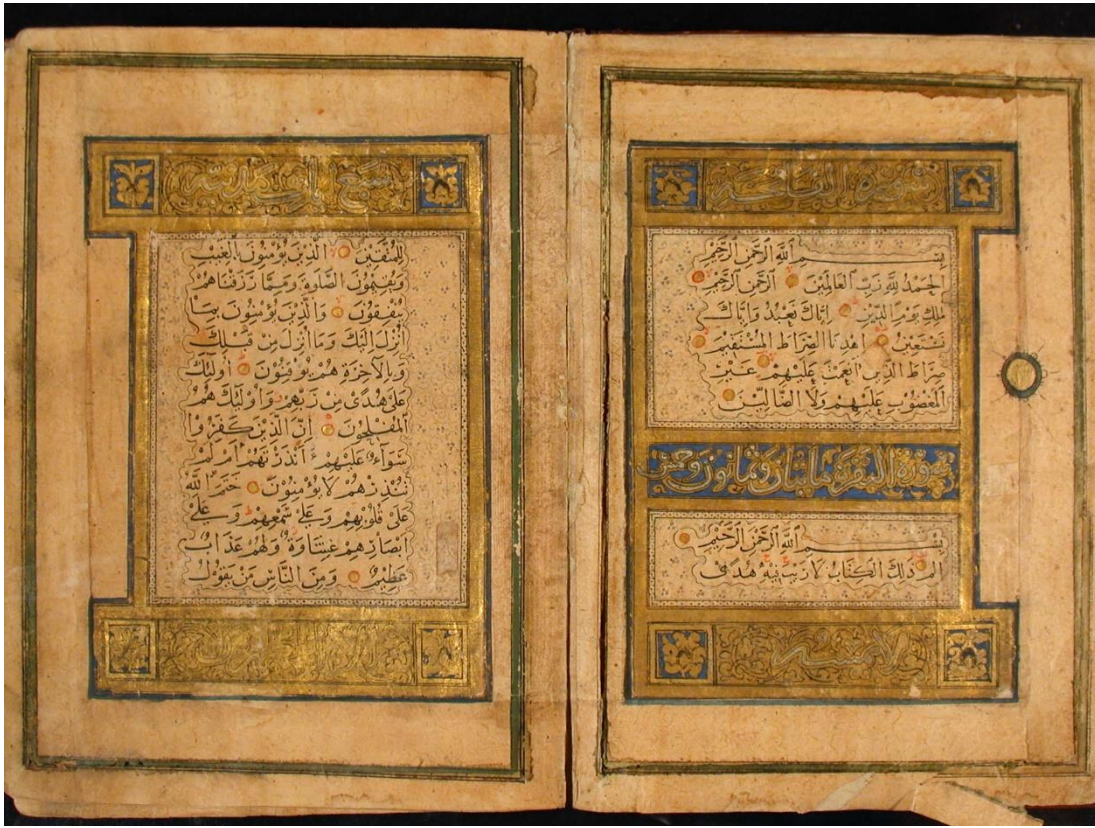 سورة الفاتحة
بِسْمِ اللَّهِ الرَّحْمَٰنِ الرَّحِيمِ
الْحَمْدُ لِلَّهِ رَبِّ الْعَالَمِينَ الرَّحْمَٰنِ الرَّحِيمِ
مَلِكِ يَوْمِ الدِّينِ إِيَّاكَ نَعْبُدُ وَإِيَّاكَ
نَسْتَعِينُ اهْدِنَا الصِّرَاطَ الْمُسْتَقِيمَ
صِرَاطَ الَّذِينَ أَنْعَمْتَ عَلَيْهِمْ غَيْرِ
الْمَغْضُوبِ عَلَيْهِمْ وَلَا الضَّالِّينَ
سورة البقرة مايتان وثمانون وخمس
بِسْمِ اللَّهِ الرَّحْمَٰنِ الرَّحِيمِ
الم ذَٰلِكَ الْكِتَابُ لَا رَيْبَ فِيهِ هُدًى
لِلْمُتَّقِينَ الَّذِينَ يُؤْمِنُونَ بِالْغَيْبِ
وَيُقِيمُونَ الصَّلَوٰةَ وَمِمَّا رَزَقْنَاهُمْ
يُنْفِقُونَ وَالَّذِينَ يُؤْمِنُونَ بِمَا
أُنْزِلَ إِلَيْكَ وَمَا أُنْزِلَ مِنْ قَبْلِكَ
وَبِالْآخِرَةِ هُمْ يُوقِنُونَ أُولَٰئِكَ
عَلَىٰ هُدًى مِنْ رَبِّهِمْ وَأُولَٰئِكَ هُمُ
الْمُفْلِحُونَ إِنَّ الَّذِينَ كَفَرُوا
سَوَاءٌ عَلَيْهِمْ ءَأَنْذَرْتَهُمْ أَمْ لَمْ
تُنْذِرْهُمْ لَا يُؤْمِنُونَ خَتَمَ اللَّهُ
عَلَىٰ قُلُوبِهِمْ وَعَلَىٰ سَمْعِهِمْ وَعَلَىٰ
أَبْصَارِهِمْ غِشَاوَةٌ وَلَهُمْ عَذَابٌ
عَظِيمٌ وَمِنَ النَّاسِ مَنْ يَقُولُ